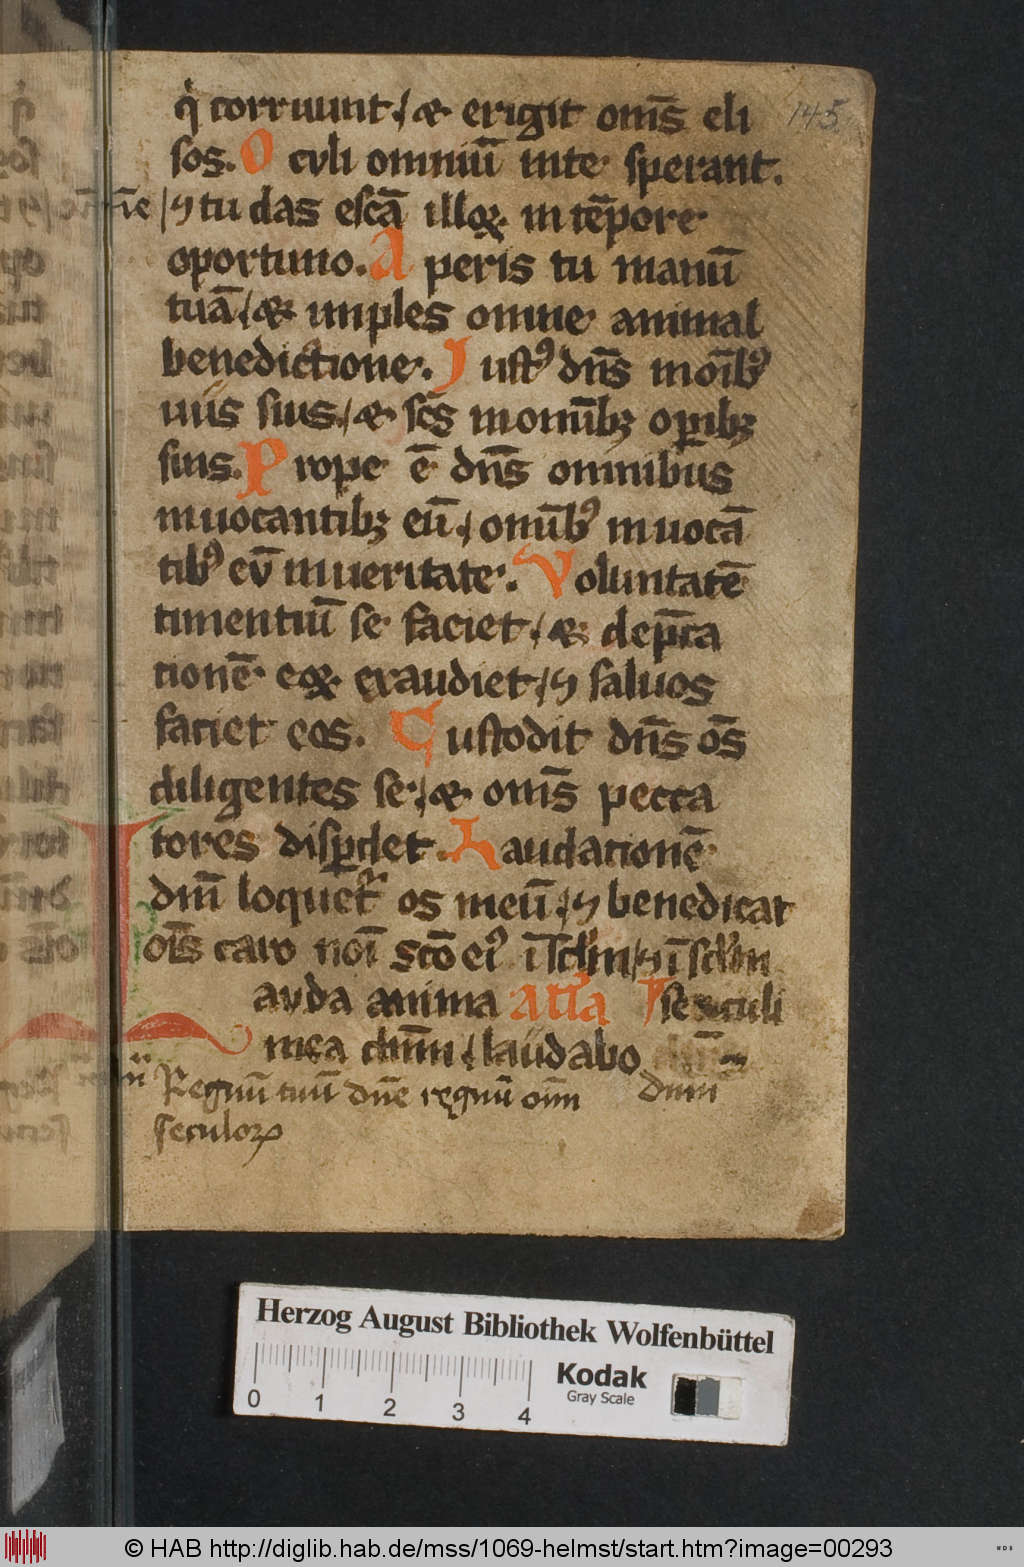 145
qͥ corruunt ⁊ erigit om̄s eli
sos. O culi omniū inte sperant.
⁊ tu das escā illoꝝ in tēpore
oportuno. A peris tu manū
tuā ⁊ imples omne animal
benedictione. I ustꝰ dn̄s in oīb
uiis suis ⁊ sc̄s in omībꝫ oꝑibꝫ
suis. P rope ē dn̄s omnibus
inuocantibꝫ eū, omībꝰ inuocā
tibꝰ ev̄ in ueritate. V oluntatē
timentiū se faciet, ⁊ dep̄ca
tionē eoꝝ exaudiet, ⁊ saluos
faciet eos. C ustodit dn̄s om̄s
diligentes se, ⁊ om̄s pecca
tores disꝑdet. L audationē
dn̄i loquet᷑ os meū, ⁊ benedicat
oīs caro noī scō eiꝰ
L auda anima
mea dn̄m laudabo
Regnū tuū dn̄e regnū om̄
seculoꝝ
Herzog August Bibliothek Wolfenbüttel
Kodak
Gray Scale
0 1 2 3 4
© HAB http://diglib.hab.de/mss/1069-helmst/start.htm?image=00293